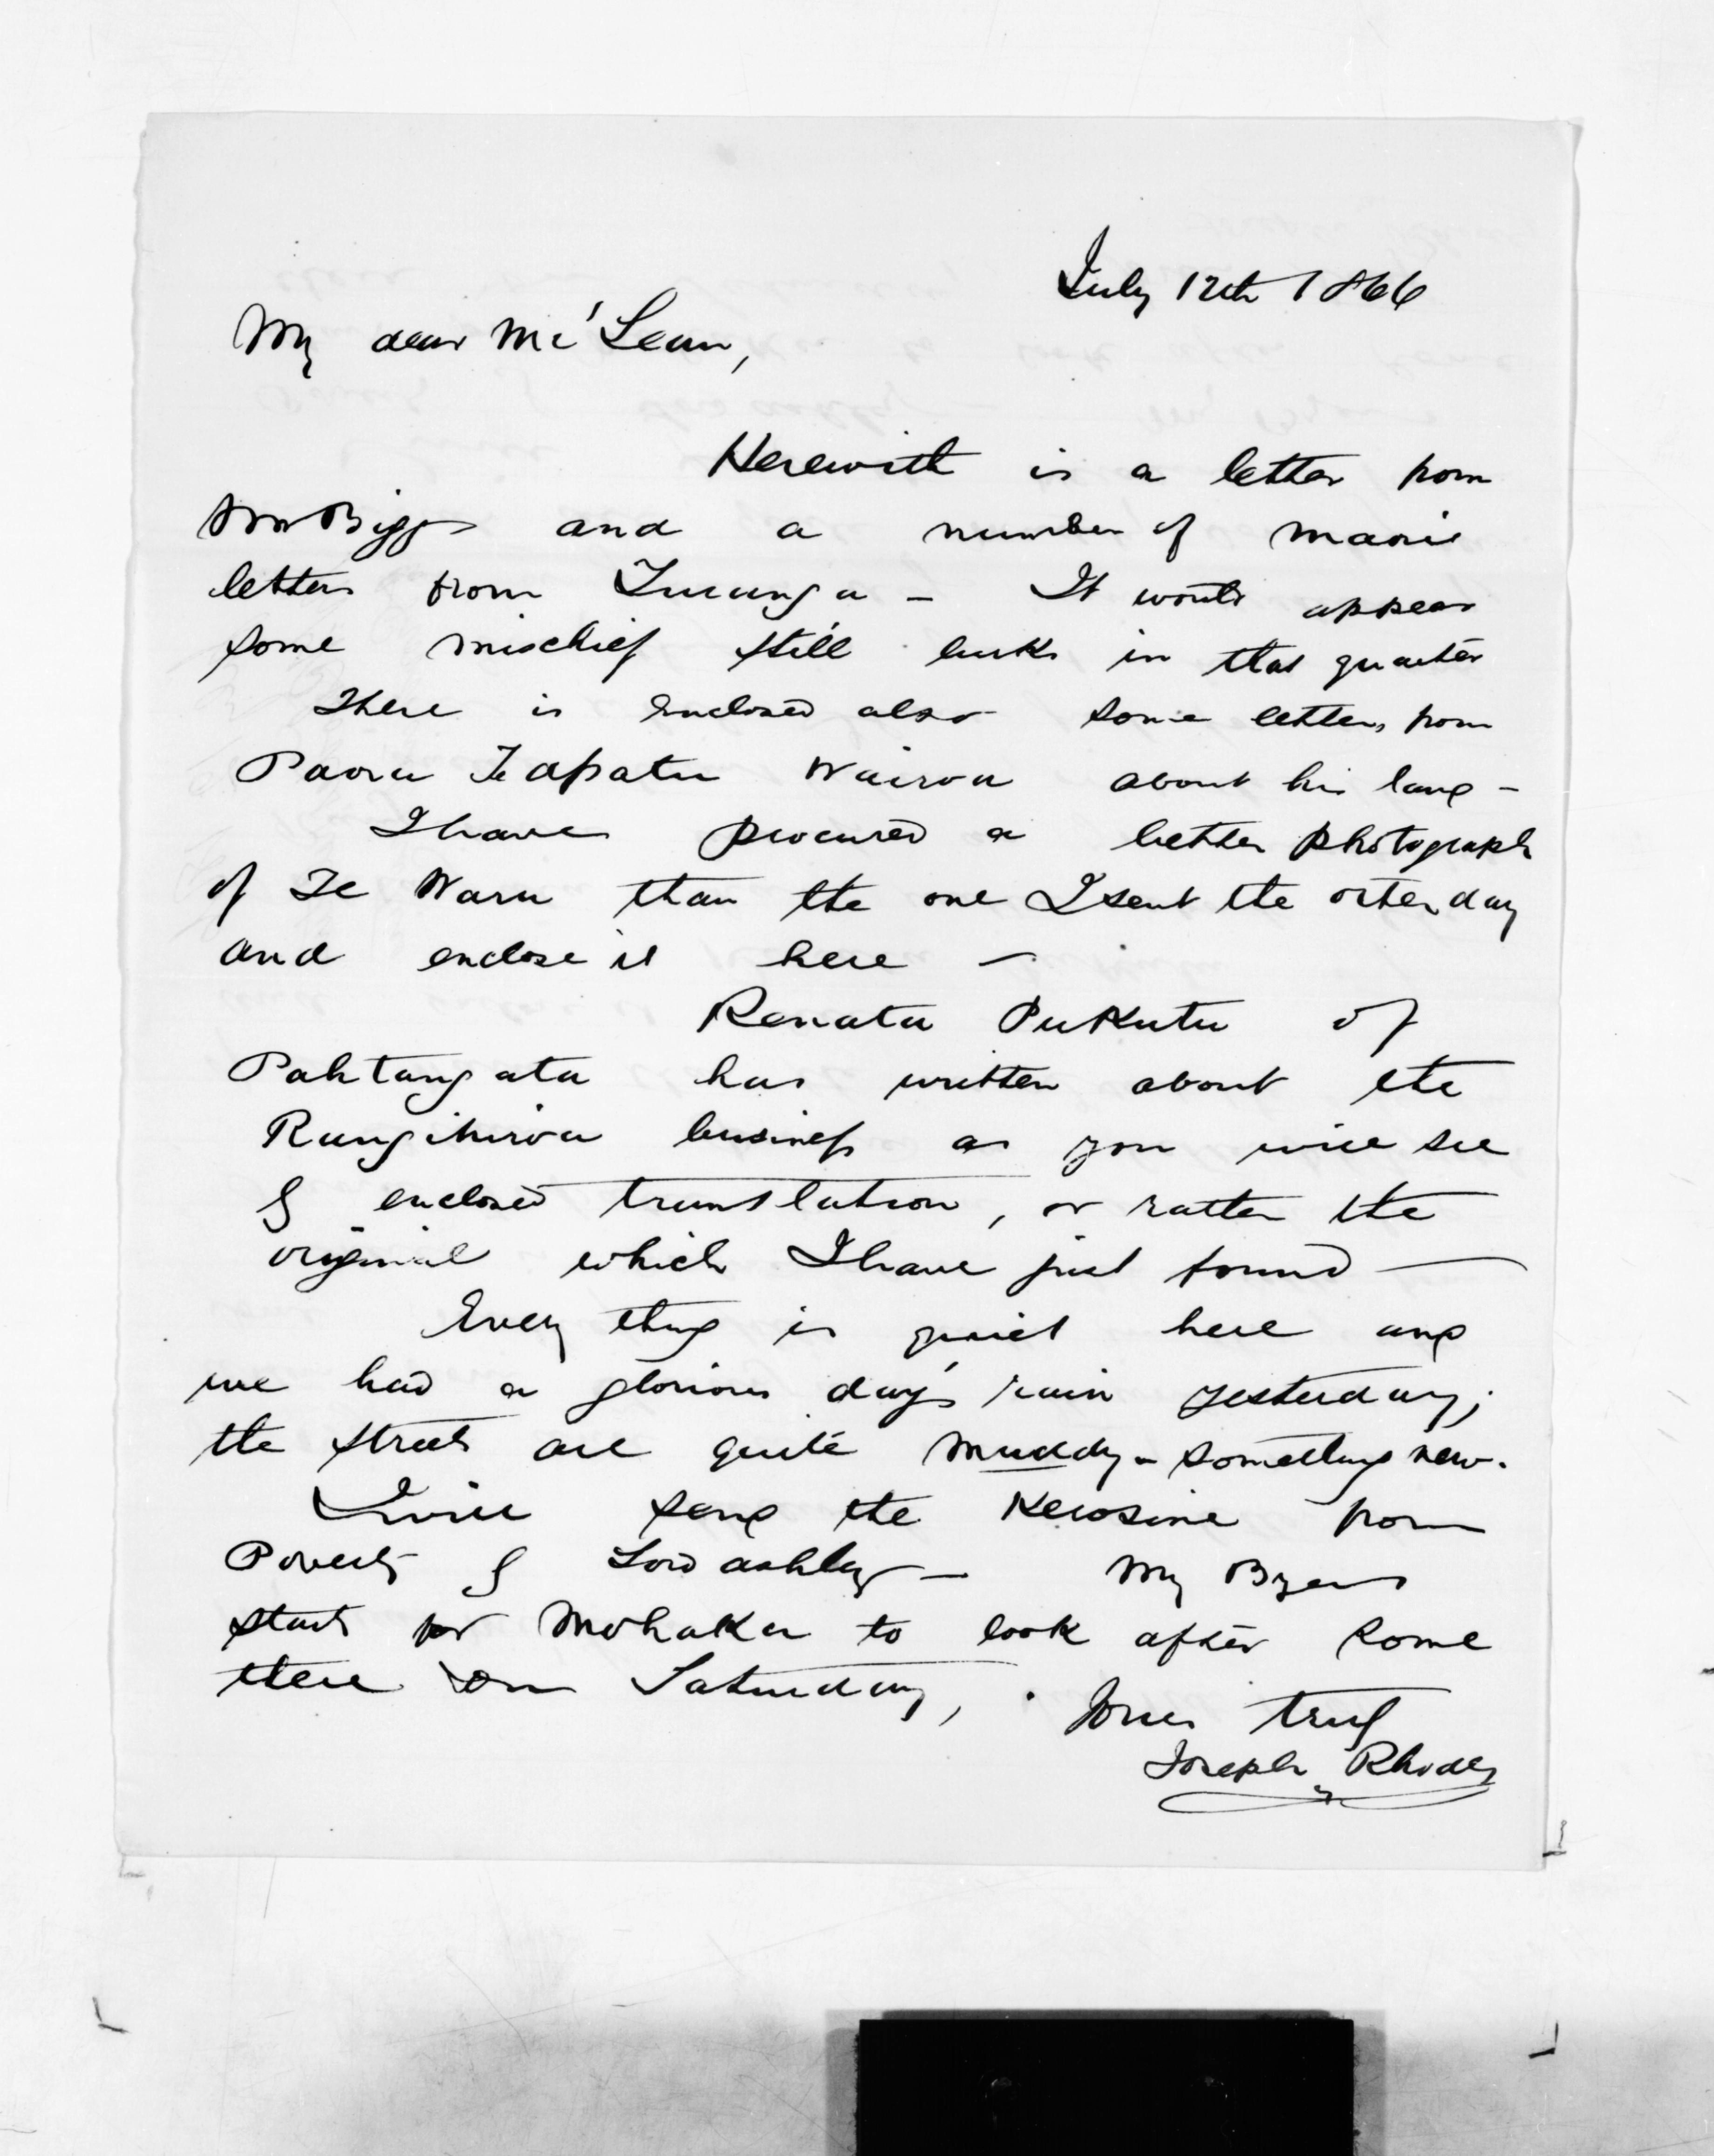 July 12th 1866
My dear McLean,
Herewith is a letter from
Mr Biggs and a number of maorie
letters from Turanga - It would appear
some mischief still lurks in that quarter
There is enclosed also some letters from
Paora Te Apatu Wairoa about his land -
I have procured a better photograph
of Te Waru than the one I sent the other day
and enclose it here -
Renata Pukutu of
Pahtangata has written about the
business as you will see
& enclosed translation, or rather the
original which I have just found -
Every thing is quiet here and
we had a glorious day's rain yesterday;
the streets are quite muddy - something new.
I will send the Kerosine from
Poverty & Lord Ashley - My Byers
starts for Mohaka to look after some
there on Saturday,
Yours truly
Joseph Rhodes